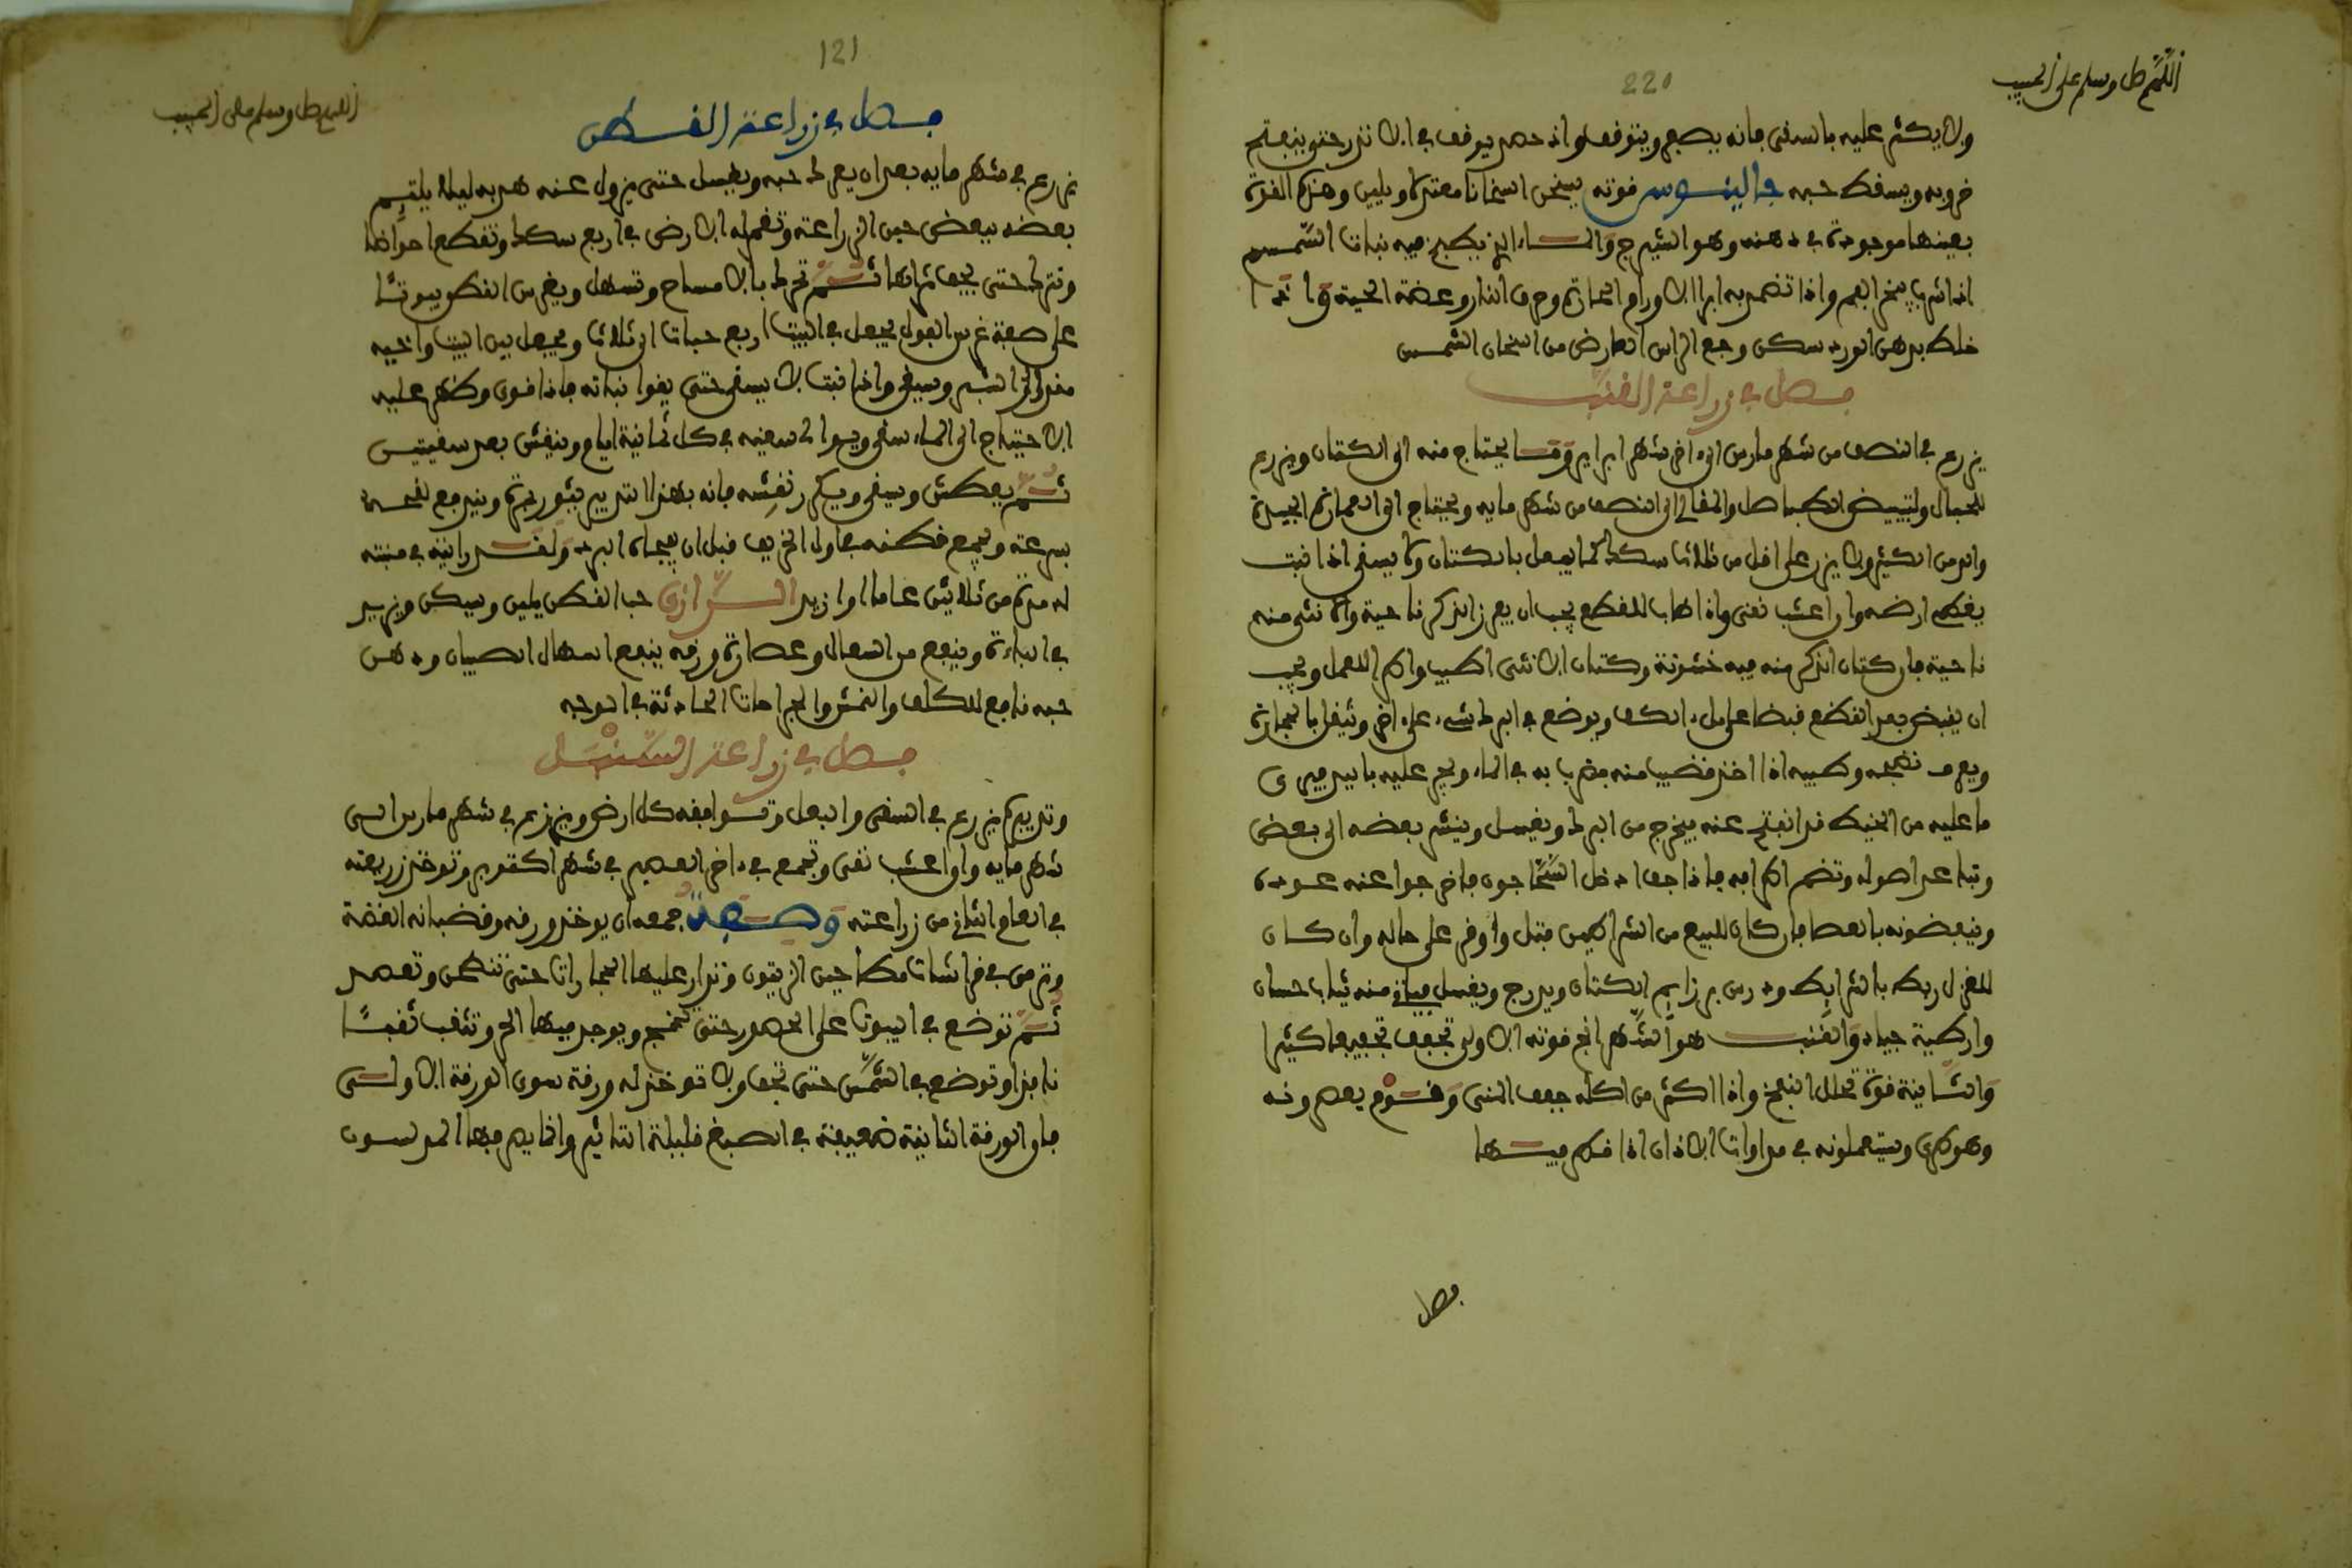 اللهم صل وسلم على الحبيب
220
ولا يكثر عليه بالسقي فإنه يصفر ويتوقف واذا حصد يوقف في الانادر حتى ينفتح
خروبه ويسقط حبه جالينوس قوته يسخن اسخانا معتدلا ويلين وهذه القوة
بعينها موجودة في دهنه وهو الشيرج والماء الذي يطبخ فيه نبات السمسم
اذا شرب يبخر الفم واذا تضمد به ابرا الاورام الحارة وحرق النار وعضة الحية واذا
خلط بدهن الورد سكن وجع الراس العارض من اسخان الشمس
فصل في زراعة القنب
يزرع في النصف من شهر مارس الى اخر شهر ابرير وقت يحتاج منه الى الكتان ويزرع
للحبال ولتبييض الى النصف من شهر مايه ويحتاج الى العمارة الجيدة
والدمن الكثير ولا يزرع على اقل من ثلاث سكك كما يفعل بالكتان ولا يسقى اذا نبت
يغطي ارضه واذا اعشب نقي واذا طاب للقطع يجب ان يعزز الذكر ناحية والانثى منه
ناحية فان كتان الذكر منه فيه خشونة وكتان الانثى اطيب واكرم للعمل ويجب
ان يقبض بعد القطع قبضا على ملء الكف ويوضع في البركة شيء على اخر ويثقل بالحجارة
ويعرف نضجه وطيبه اذا اخذ قضيب منه فضرب به في الماء ويجر عليه باليد فيرى
ما عليه من الخيط قد انفتح عنه فيخرج من البركة ويغسل وينشر بعضه الى بعض
وتباعد اصوله وتضم اطرافه فاذا جف ادخل فاخرجوا عنه عوده
وينفضونه بالعصا فان كان للبيع من الشرائطين فتل واوفر على حاله وان كان
للغزل ربط بالشرايط ودرس الكتان ويدرج ويغسل فياتي منه ثياب حسان
واردية جياد والقنب هو الشهدانج قوته الاولى تجفف تجفيفا كثيرا
والثانية قوة تحلل النفخ واذا اكثر من اكله جفف المني وقوم يعصرونه
وهو طري ويستعملونه في مداوات الاذان اذا قطر فيها
فصل
121
اللهم صل وسلم على الحبيب
فصل في زراعة القطن
يزرع في شهر مايه بعد ان يعرك حبه ويغسل حتى يزول عنه هدبه ليلا يلتزم
بعضه ببعض حين الزراعة وتعمر له الارض في اربع سكك وتقطع احواضا
وتترك حتى يجف ثراها ثم تحرك بالامساح وتسهل ويغرس القطن بيوتا
على صفة غرس الفول يجعل في البيت اربع حبات الى ثلاث ويجعل بين البيت واخيه
مقدار الشبر ويسقى واذا نبت لا يسقى حتى يقوا نباته فاذا قوي وظهر عليه
الاحتياج الى الماء سقي ويوالى سقيه في كل ثمانية ايام وينقش بعد سقيتين
ثم يعطش ويسقى ويكرر نقشه فانه بهذا التدبير ينور
بسرعة ويجمع قطنه في اول الخريف قبل ان يفجاه البرد ولقد رايته في منبته
له مدة من ثلاثين عاما او ازيد الرازي حب القطن يلين ويسكن ويزيد
في الباءة وينفع من السعال وعصارة ورقه ينفع اسهال الصبيان ودهن
حبه نافع للكلف والنمش والجراحات الحادثة في الوجه
فصل في زراعة
وتدبيره يزرع في السقي والبعل وتوافقه كل ارض ويزرع في شهر مارس الى
شهر مايه واذا اعشب نقي وتجمع في اخر العصير في شهر اكتوبر وتوخذ زريعته
في العام الثاني من زراعته وصفة جمعه ان يوخذ ورقه وقضبانه الغضة
وتدرس في مطاحين الزيتون وتدار عليها الحجارات حتى تنطحن وتعصر
ثم توضع في البيوت على الحصر حتى تخمج ويوجد فيها الحر وتثقب ثقبا
نافذا وتوضع في الشمس حتى تجف ولا توخذ له ورقة سوى الورقة الاولى
فان الورقة الثانية ضعيفة في الصبغ قليلة التاثير وانما يرغب فيها المدلسون